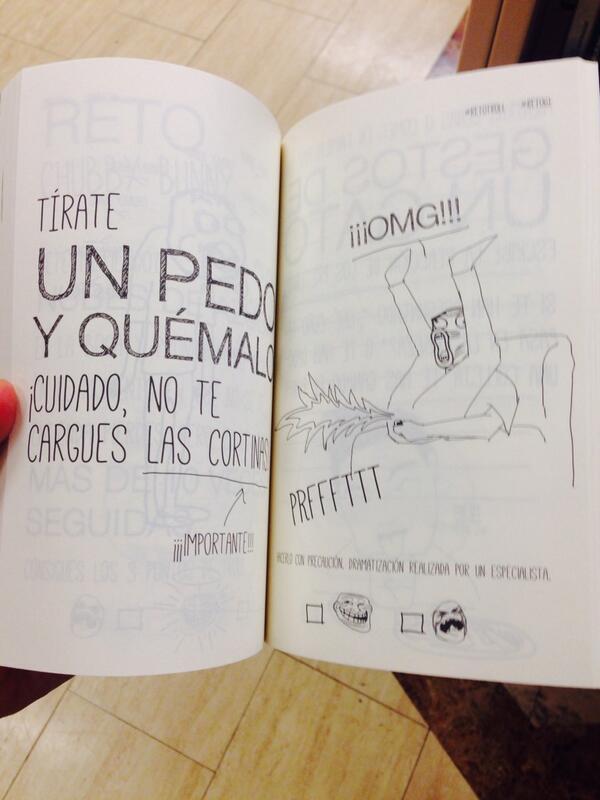 TÍRATE
UN PEDO
Y QUÉMALO
¡CUIDADO, NO TE
CARGUES LAS CORTINAS
¡¡¡IMPORTANTE!!!
#RETOTROLL #RETO61
¡¡¡OMG!!!
PRFFFTTT
HACERLO CON PRECAUCIÓN. DRAMATIZACIÓN REALIZADA POR UN ESPECIALISTA.
RETO
CHUBBY BUNNY
GESTOS DE
UN GATO
SEGUIDA